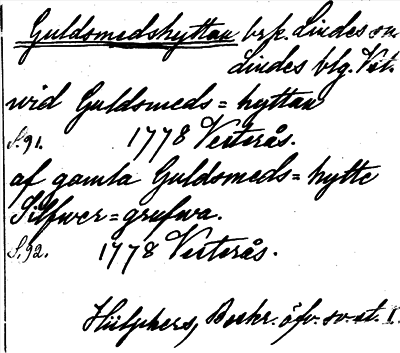 Guldsmedshyttan brk. Lindes sn
Lindes blg. Vstm.
wid Guldsmeds=hyttan
S. 91. 1778 Vesterås.
af gamla Guldsmeds=hytte
Silfwer=grufwa.
S. 92. 1778 Vesterås.
Hülphers, Beskr. öfv. sv. st. I.